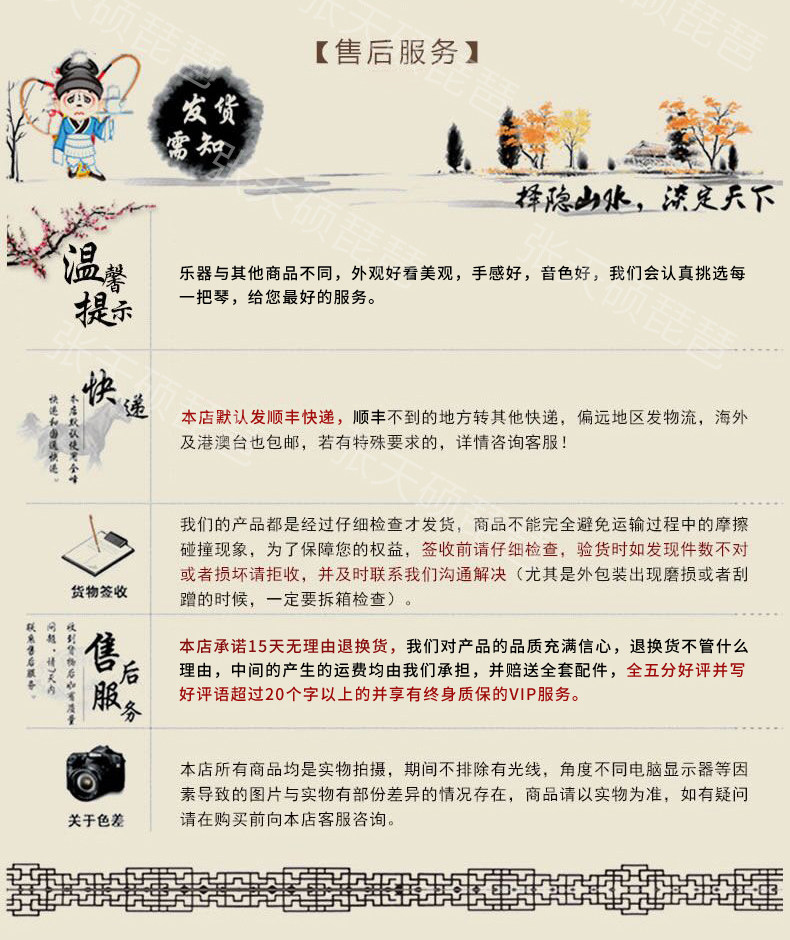 【售后服务】
发货
需知
择隐山水，淡定天下
温馨
提示
乐器与其他商品不同，外观好看美观，手感好，音色好，我们会认真挑选每
一把琴，给您最好的服务。
快递
本店默认使用全峰
快递和国通快递。
本店默认发顺丰快递，顺丰不到的地方转其他快递，偏远地区发物流，海外
及港澳台也包邮，若有特殊要求的，详情咨询客服！
货物签收
我们的产品都是经过仔细检查才发货，商品不能完全避免运输过程中的摩擦
碰撞现象，为了保障您的权益，签收前请仔细检查，验货时如发现件数不对
或者损坏请拒收，并及时联系我们沟通解决（尤其是外包装出现磨损或者刮
蹭的时候，一定要拆箱检查）。
售后
服务
收到货物后如有质量
问题，请7天内
联系售后服务。
本店承诺15天无理由退换货，我们对产品的品质充满信心，退换货不管什么
理由，中间的产生的运费均由我们承担，并赔送全套配件，全五分好评并写
好评语超过20个字以上的并享有终身质保的VIP服务。
关于色差
本店所有商品均是实物拍摄，期间不排除有光线，角度不同电脑显示器等因
素导致的图片与实物有部份差异的情况存在，商品请以实物为准，如有疑问
请在购买前向本店客服咨询。
张天硕琵琶